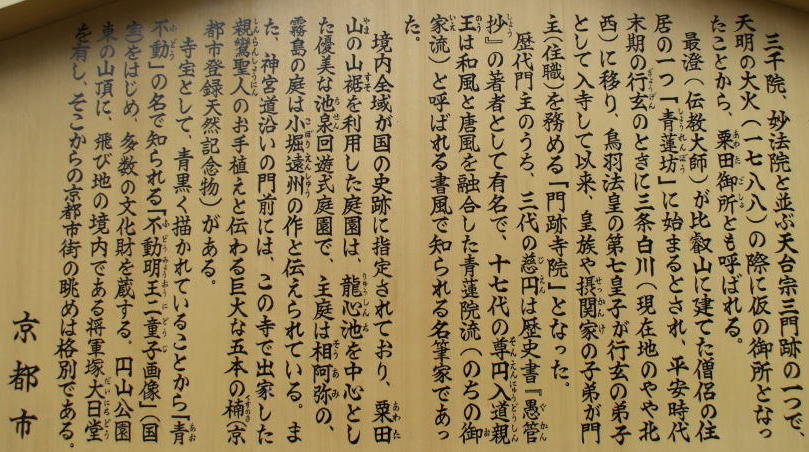 三千院、妙法院と並ぶ天台宗三門跡の一つで、
天明の大火（一七八八）の際に仮の御所となっ
たことから、粟田御所とも呼ばれる。
最澄（伝教大師）が比叡山に建てた僧侶の住
居の一つ「青蓮坊」に始まるとされ、平安時代
末期の行玄のときに三条白川（現在地のやや北
西）に移り、鳥羽法皇の第七皇子が行玄の弟子
として入寺して以来、皇族や摂関家の子弟が門
主（住職）を務める「門跡寺院」となった。
歴代門主のうち、三代の慈円は歴史書『愚管
抄』の著者として有名で、十七代の尊円入道親
王は和風と唐風を融合した青蓮院流（のちの御
家流）と呼ばれる書風で知られる名筆家であっ
た。
境内全域が国の史跡に指定されており、粟田
山の山裾を利用した庭園は、龍心池を中心とし
た優美な池泉回遊式庭園で、主庭は相阿弥の、
霧島の庭は小堀遠州の作と伝えられている。ま
た、神宮道沿いの門前には、この寺で出家した
親鸞聖人のお手植えと伝わる巨大な五本の楠（京
都市登録天然記念物）がある。
寺宝として、青黒く描かれていることから「青
不動」の名で知られる「不動明王二童子画像」（国
宝）をはじめ、多数の文化財を蔵する。円山公園
東の山頂に、飛び地の境内である将軍塚大日堂
を有し、そこからの京都市街の眺めは格別である。
京都市